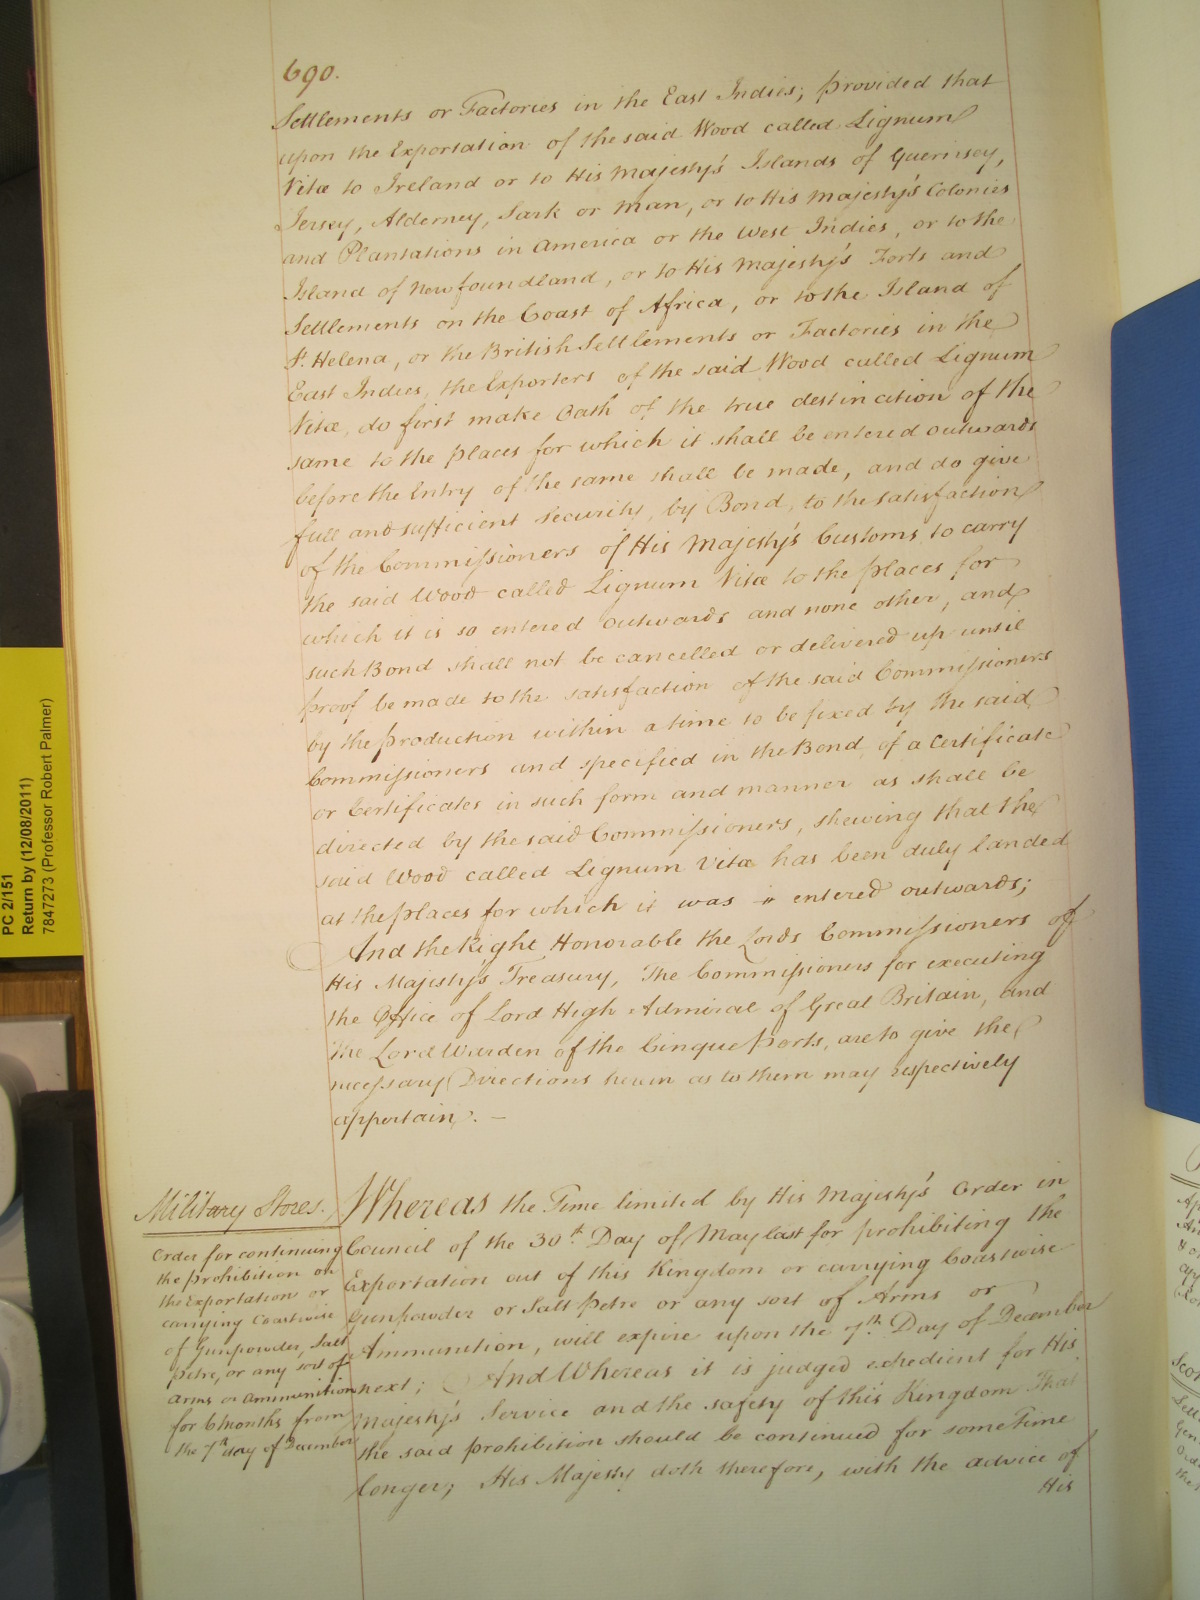 690.
Settlements or Factories in the East Indies; provided that
upon the Exportation of the said Wood called Lignum
Vitæ to Ireland or to His Majesty's Islands of Guernsey,
Jersey, Alderney, Sark or Man, or to His Majesty's Colonies
and Plantations in America or the West Indies, or to the
Island of Newfoundland, or to His Majesty's Forts and
Settlements on the Coast of Africa, or to the Island of
St. Helena, or the British Settlements or Factories in the
East Indies, the Exporters of the said Wood called Lignum
Vitæ, do first make Oath of the true destination of the
same to the places for which it shall be entered outwards
before the Entry of the same shall be made, and do give
full and sufficient Security, by Bond, to the satisfaction
of the Commissioners of His Majesty's Customs, to carry
the said Wood called Lignum Vitæ to the places for
which it is so entered outwards and none other, and
such Bond shall not be cancelled or delivered up until
proof be made to the satisfaction of the said Commissioners
by the production within a time to be fixed by the said
Commissioners and specified in the Bond, of a Certificate
or Certificates in such form and manner as shall be
directed by the said Commissioners, shewing that the
said Wood called Lignum Vitæ has been duly landed
at the places for which it was entered outwards;
And the Right Honorable the Lords Commissioners of
His Majesty's Treasury, The Commissioners for executing
the Office of Lord High Admiral of Great Britain, and
the Lord Warden of the Cinque Ports, are to give the
necessary Directions herein as to them may respectively
appertain. —
Military Stores.
Order for continuing
the prohibition on
the Exportation or
carrying Coastwise
of Gunpowder, Salt
Petre, or any sort of
Arms or Ammunition
for 6 Months from
the 7th day of December
Whereas the Time limited by His Majesty's Order in
Council of the 30th Day of May last for prohibiting the
Exportation out of this Kingdom or carrying Coastwise
Gunpowder or Salt Petre or any sort of Arms or
Ammunition, will expire upon the 7th Day of December
next; And Whereas it is judged expedient for His
Majesty's Service and the safety of this Kingdom That
the said prohibition should be continued for some Time
longer; His Majesty doth therefore, with the advice of
His
PC 2/151
Return by (12/08/2011)
7847273 (Professor Robert Palmer)